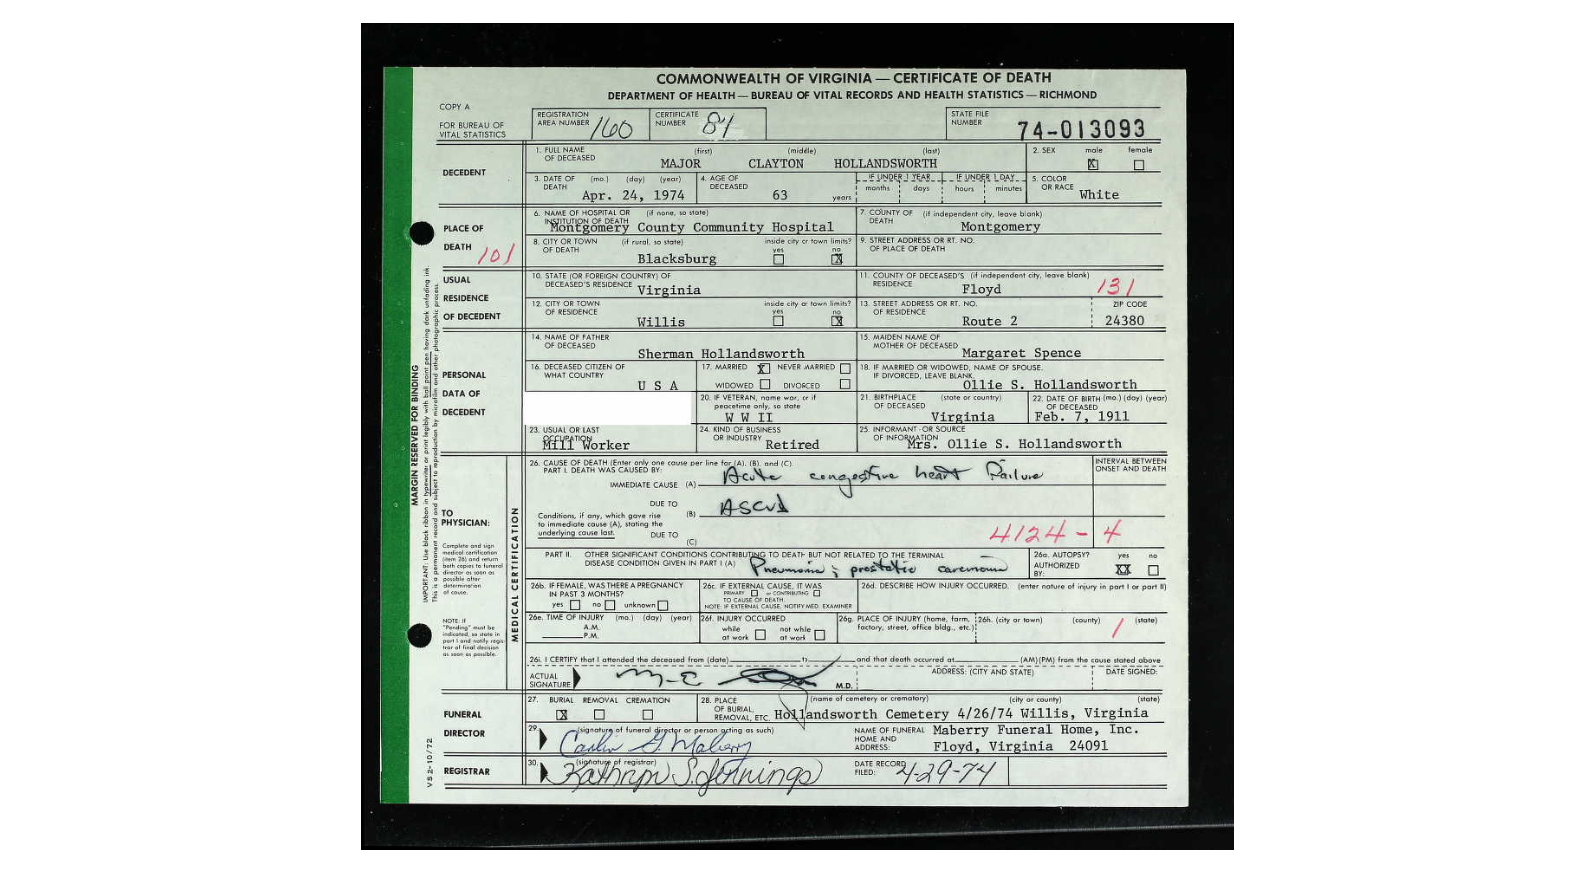 COMMONWEALTH OF VIRGINIA — CERTIFICATE OF DEATH
DEPARTMENT OF HEALTH — BUREAU OF VITAL RECORDS AND HEALTH STATISTICS — RICHMOND
COPY A
FOR BUREAU OF
VITAL STATISTICS
REGISTRATION
AREA NUMBER 160
CERTIFICATE
NUMBER 81
STATE FILE
NUMBER 74-013093
DECEDENT
1. FULL NAME (first) (middle) (last)
OF DECEASED
MAJOR CLAYTON HOLLANDSWORTH
2. SEX male female
X
3. DATE OF (mo.) (day) (year)
DEATH
Apr. 24, 1974
4. AGE OF
DECEASED
63 years
IF UNDER 1 YEAR IF UNDER 1 DAY
months days hours minutes
5. COLOR
OR RACE White
PLACE OF
DEATH
101
6. NAME OF HOSPITAL OR (if none, so state)
INSTITUTION OF DEATH
Montgomery County Community Hospital
7. COUNTY OF (if independent city, leave blank)
DEATH
Montgomery
8. CITY OR TOWN (if rural, so state)
OF DEATH
Blacksburg
inside city or town limits?
yes no
X
9. STREET ADDRESS OR RT. NO.
OF PLACE OF DEATH
USUAL
RESIDENCE
OF DECEDENT
10. STATE (OR FOREIGN COUNTRY) OF
DECEASED'S RESIDENCE
Virginia
11. COUNTY OF DECEASED'S (if independent city, leave blank)
RESIDENCE
Floyd
131
12. CITY OR TOWN
OF RESIDENCE
Willis
inside city or town limits?
yes no
X
13. STREET ADDRESS OR RT. NO.
OF RESIDENCE
Route 2
ZIP CODE
24380
PERSONAL
DATA OF
DECEDENT
14. NAME OF FATHER
OF DECEASED
Sherman Hollandsworth
15. MAIDEN NAME OF
MOTHER OF DECEASED
Margaret Spence
16. DECEASED CITIZEN OF
WHAT COUNTRY
U S A
17. MARRIED X NEVER MARRIED
WIDOWED DIVORCED
18. IF MARRIED OR WIDOWED, NAME OF SPOUSE.
IF DIVORCED, LEAVE BLANK
Ollie S. Hollandsworth
20. IF VETERAN, name war, or if
peacetime only, so state
W W II
21. BIRTHPLACE (state or country)
OF DECEASED
Virginia
22. DATE OF BIRTH (mo.) (day) (year)
OF DECEASED
Feb. 7, 1911
23. USUAL OR LAST
OCCUPATION
Mill Worker
24. KIND OF BUSINESS
OR INDUSTRY
Retired
25. INFORMANT - OR SOURCE
OF INFORMATION
Mrs. Ollie S. Hollandsworth
MARGIN RESERVED FOR BINDING
IMPORTANT: Use black ribbon in typewriter or print legibly with ball point pen having dark unfading ink.
This is a permanent record and subject to reproduction by microfilm and other photographic process.
TO
PHYSICIAN:
Complete and sign
medical certification
(item 26) and return
both copies to funeral
director as soon as
possible after
determination
of cause.
NOTE: If
"Pending" must be
indicated, so state in
part I and notify regis-
trar of final decision
as soon as possible.
MEDICAL CERTIFICATION
26. CAUSE OF DEATH (Enter only one cause per line for (A), (B), and (C)
PART I. DEATH WAS CAUSED BY:
INTERVAL BETWEEN
ONSET AND DEATH
IMMEDIATE CAUSE (A) Acute congestive heart Failure
DUE TO
(B) ASCVD
Conditions, if any, which gave rise
to immediate cause (A), stating the
underlying cause last.
DUE TO
(C)
4124-4
PART II. OTHER SIGNIFICANT CONDITIONS CONTRIBUTING TO DEATH BUT NOT RELATED TO THE TERMINAL
DISEASE CONDITION GIVEN IN PART I (A)
Pneumonia; prostatic carcinoma
26a. AUTOPSY? yes no
AUTHORIZED
BY:
XX
26b. IF FEMALE, WAS THERE A PREGNANCY
IN PAST 3 MONTHS?
yes no unknown
26c. IF EXTERNAL CAUSE, IT WAS
PRIMARY or CONTRIBUTING
TO CAUSE OF DEATH.
NOTE: IF EXTERNAL CAUSE, NOTIFY MED. EXAMINER
26d. DESCRIBE HOW INJURY OCCURRED. (enter nature of injury in part I or part II)
26e. TIME OF INJURY (mo.) (day) (year)
A.M.
P.M.
26f. INJURY OCCURRED
while not while
at work at work
26g. PLACE OF INJURY (home, farm,
factory, street, office bldg., etc.)
26h. (city or town) (county) (state)
1
26i. I CERTIFY that I attended the deceased from (date) to and that death occurred at (AM)(PM) from the cause stated above
ACTUAL
SIGNATURE
M.D.
ADDRESS: (CITY AND STATE)
DATE SIGNED:
FUNERAL
DIRECTOR
27. BURIAL REMOVAL CREMATION
X
28. PLACE (name of cemetery or crematory) (city or county) (state)
OF BURIAL,
REMOVAL, ETC.
Hollandsworth Cemetery 4/26/74 Willis, Virginia
29. (signature of funeral director or person acting as such)
Carlin G. Maberry
NAME OF FUNERAL
HOME AND
ADDRESS:
Maberry Funeral Home, Inc.
Floyd, Virginia 24091
REGISTRAR
30. (signature of registrar)
Kathryn S. Jennings
DATE RECORD
FILED: 4-29-74
VS 2-10/72